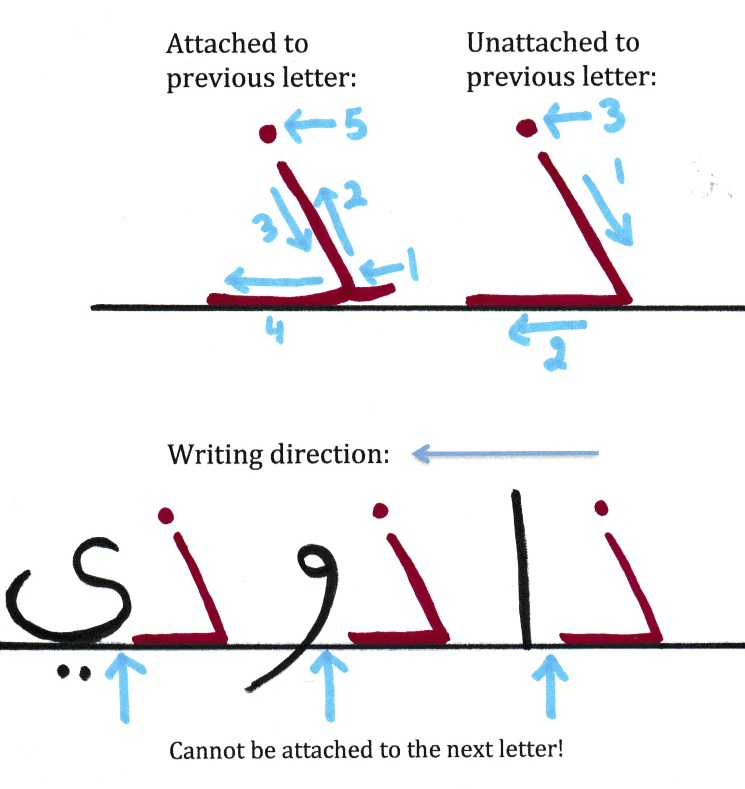 Attached to
previous letter:
Unattached to
previous letter:
5
3
2
3
1
1
4
2
Writing direction:
ذا ذو ذي
Cannot be attached to the next letter!